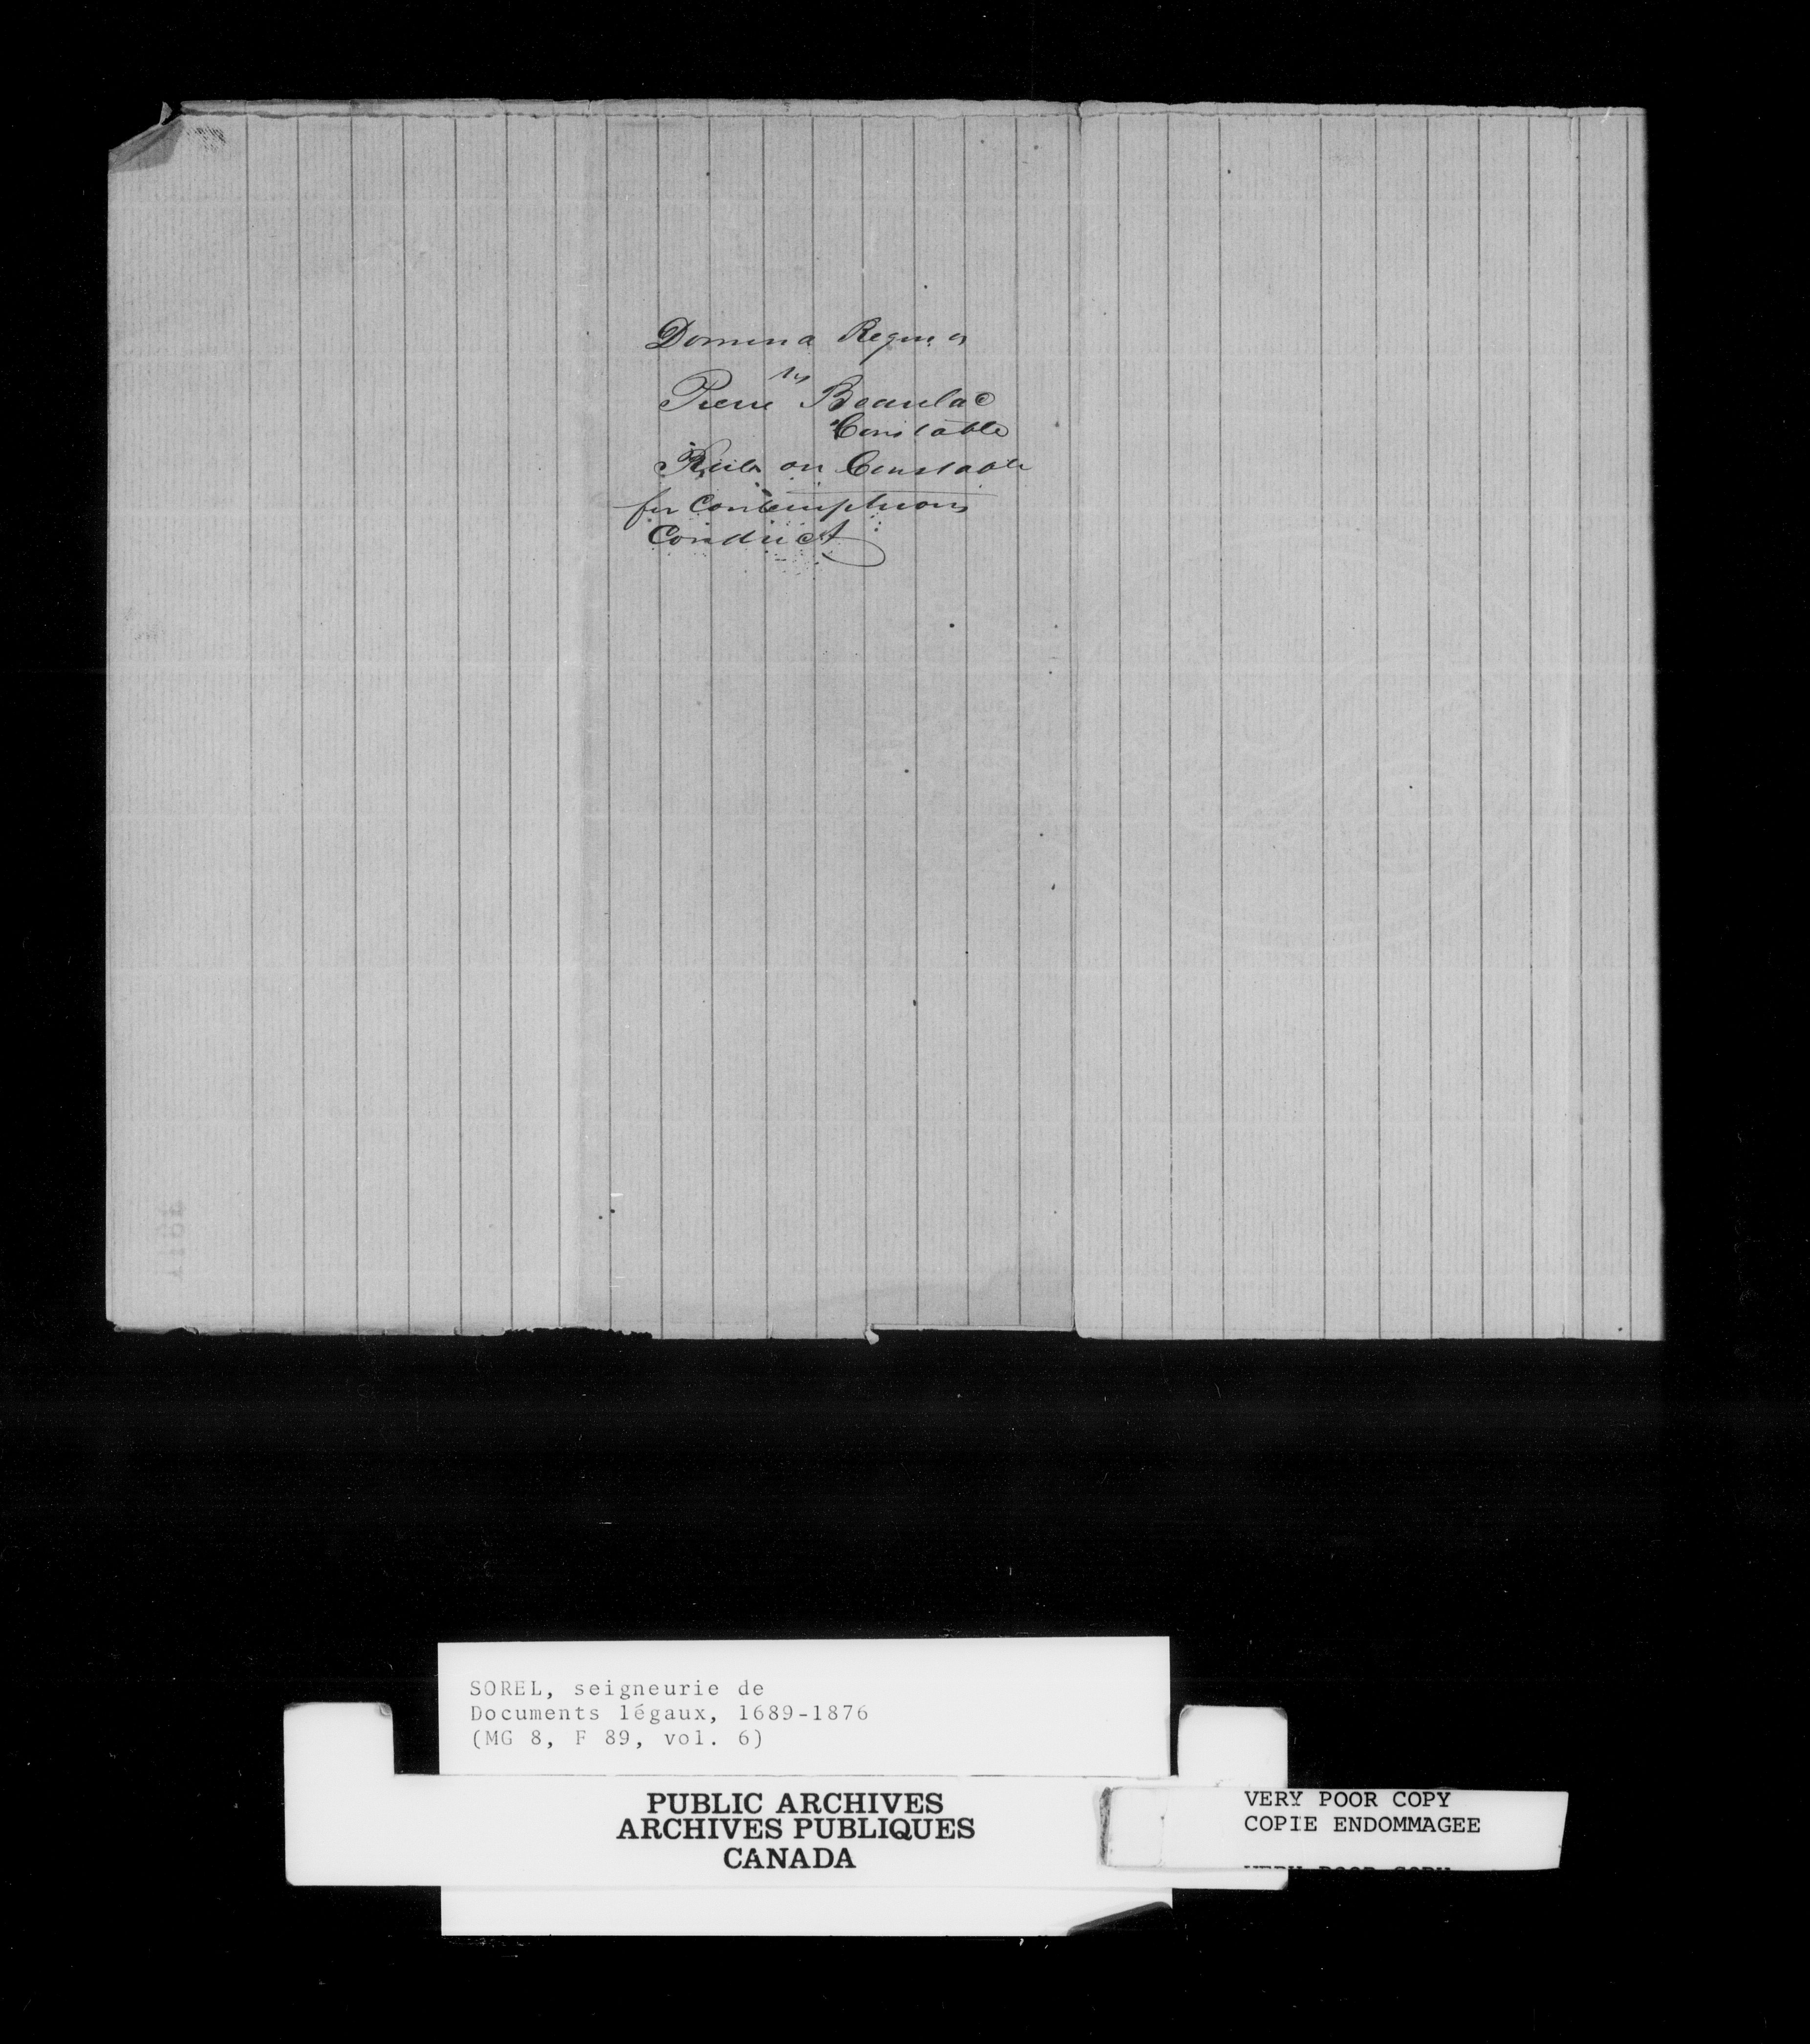 Domina Regina
vs
Pierre Beaulac
Constable
Rule on Constable
for Contemptuous
Conduct
SOREL, seigneurie de
Documents légaux, 1689-1876
(MG 8, F 89, vol. 6)
PUBLIC ARCHIVES
ARCHIVES PUBLIQUES
CANADA
VERY POOR COPY
COPIE ENDOMMAGEE
VERY POOR COPY